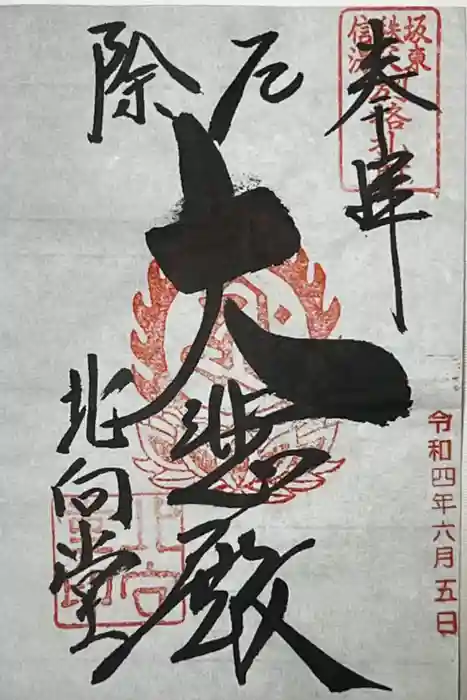 坂東
奉拝
令和四年六月五日
厄除
大悲殿
北向堂